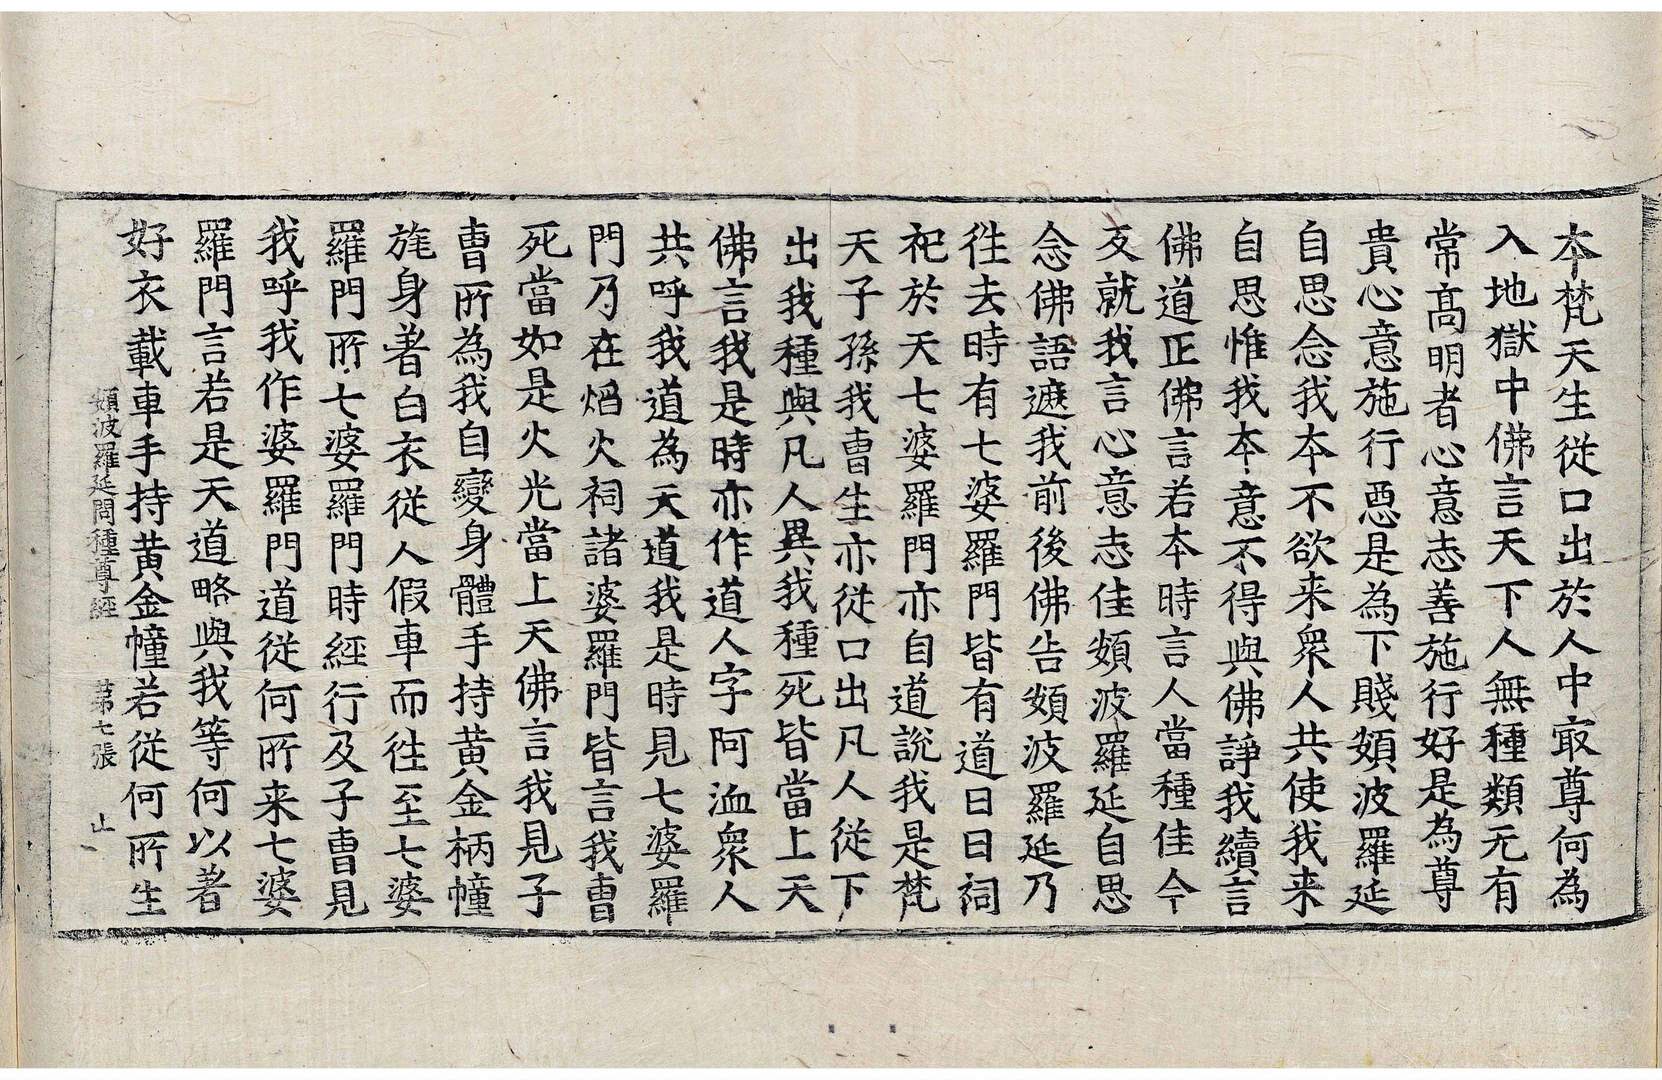 本梵天生從口出於人中㝡尊何為
入地獄中佛言天下人無種類无有
常高明者心意志善施行好是為尊
貴心意施行惡是為下賤頞波羅延
自思念我本不欲来衆人共使我来
自思惟我本意不得與佛諍我續言
佛道正佛言若本時言人當種佳今
反就我言心意志佳頞波羅延自思
念佛語遮我前後佛告頞波羅延乃
徃去時有七婆羅門皆有道日日祠
祀於天七婆羅門亦自道說我是梵
天子孫我曹生亦從口出凡人從下
出我種與凡人異我種死皆當上天
佛言我是時亦作道人字阿洫衆人
共呼我道為天道我是時見七婆羅
門乃在㷔火祠諸婆羅門皆言我曹
死當如是火光當上天佛言我見子
曹所為我自變身體手持黄金柄幢
旄身著白衣從人假車而徃至七婆
羅門所七婆羅門時經行及子曹見
我呼我作婆羅門道從何所来七婆
羅門言若是天道略與我等何以著
好衣載車手持黄金幢若從何所生
頞波羅延問種尊經 第七張 止